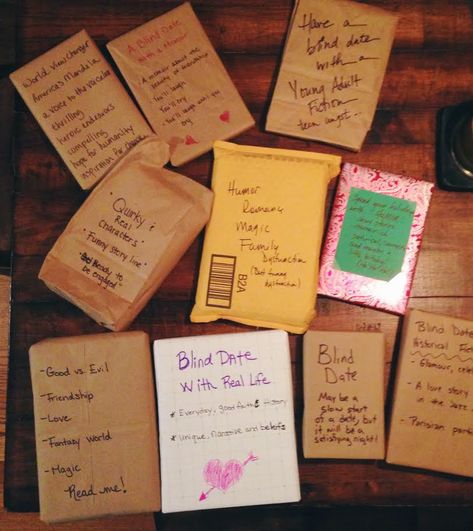 World View Changer
America's Mandela
a voice to the voiceless
thrilling
heroic endeavors
compelling
hope for humanity
inspiration for
A Blind Date
With a Memoir
A memoir about the
of friendship
You'll laugh
You'll cry
you
cry
Have a
blind date
with a
Young Adult
Fiction
teen angst...
"Quirky &
Real
Characters"
"Funny story line"
Ready to
be engaged"
Humor
Romance
Magic
Family
Dysfunction
(But funny
dysfunction)
B2A
with
and
-Good vs. Evil
-Friendship
-Love
-Fantasy World
-Magic
Read me!
Blind Date
With Real Life
* Everyday, good faith & history
* Unique, narrative and beliefs
Blind
Date
May be a
slow start
of a date, but
it will be a
satisfying night!
Blind Da
Historical Fic
- Glamour, cele
- A love story
in the Jazz
- Parisian part